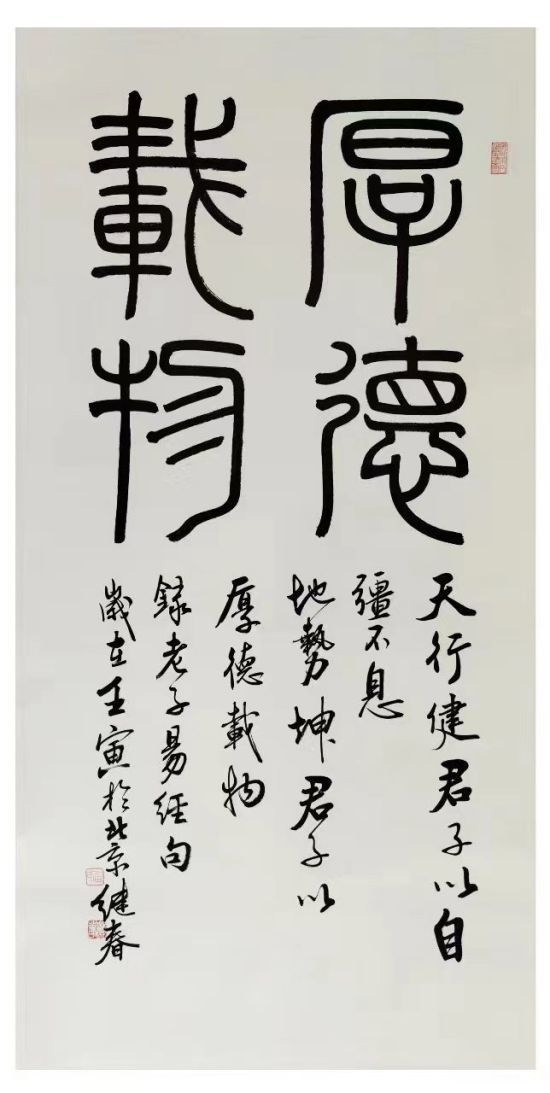 厚德
載物
天行健君子以自
彊不息
地勢坤君子以
厚德載物
録老子易經句
歲在壬寅於北京继春